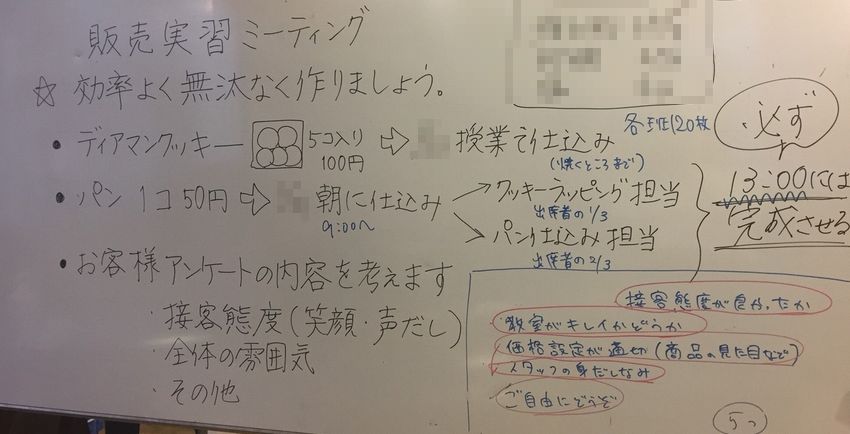 販売実習ミーティング
☆ 効率よく無汰なく作りましょう。
・ディアマンクッキー 5コ入り 100円 ⇨ 授業で仕込み
(焼くところまで)
各班120枚
・パン 1コ50円 ⇨ 朝に仕込み
9:00〜
→クッキーラッピング担当
出席者の1/3
→パン仕込み担当
出席者の2/3
必ず
13:00には
完成させる
・お客様アンケートの内容を考えます
・接客態度(笑顔・声だし)
・全体の雰囲気
・その他
接客態度が良かったか
・教室がキレイかどうか
・価格設定が適切(商品の見た目など)
・スタッフの身だしなみ
ご自由にどうぞ
5つ